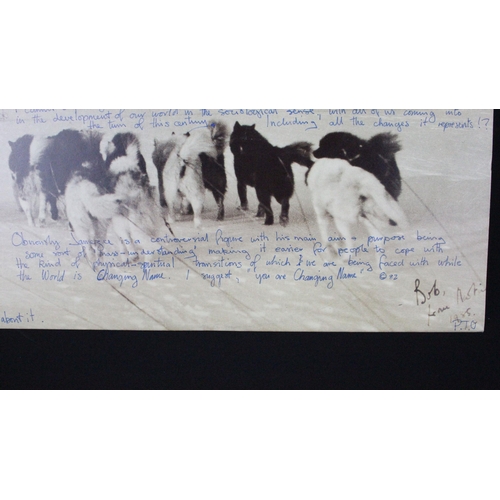 in the development of our world in the sociological sense, with all of us coming into
the turn of this century. Including all the changes it represents!?
Obviously Someone is a controversial figure with his main aim & purpose being
some sort of "understanding" making it easier for people to cope with
the kind of physical-spiritual transitions of which I & we are being faced with while
the World is Changing Name. I suggest, "you are Changing Name". ©
about it.
Bob,
P.J.O